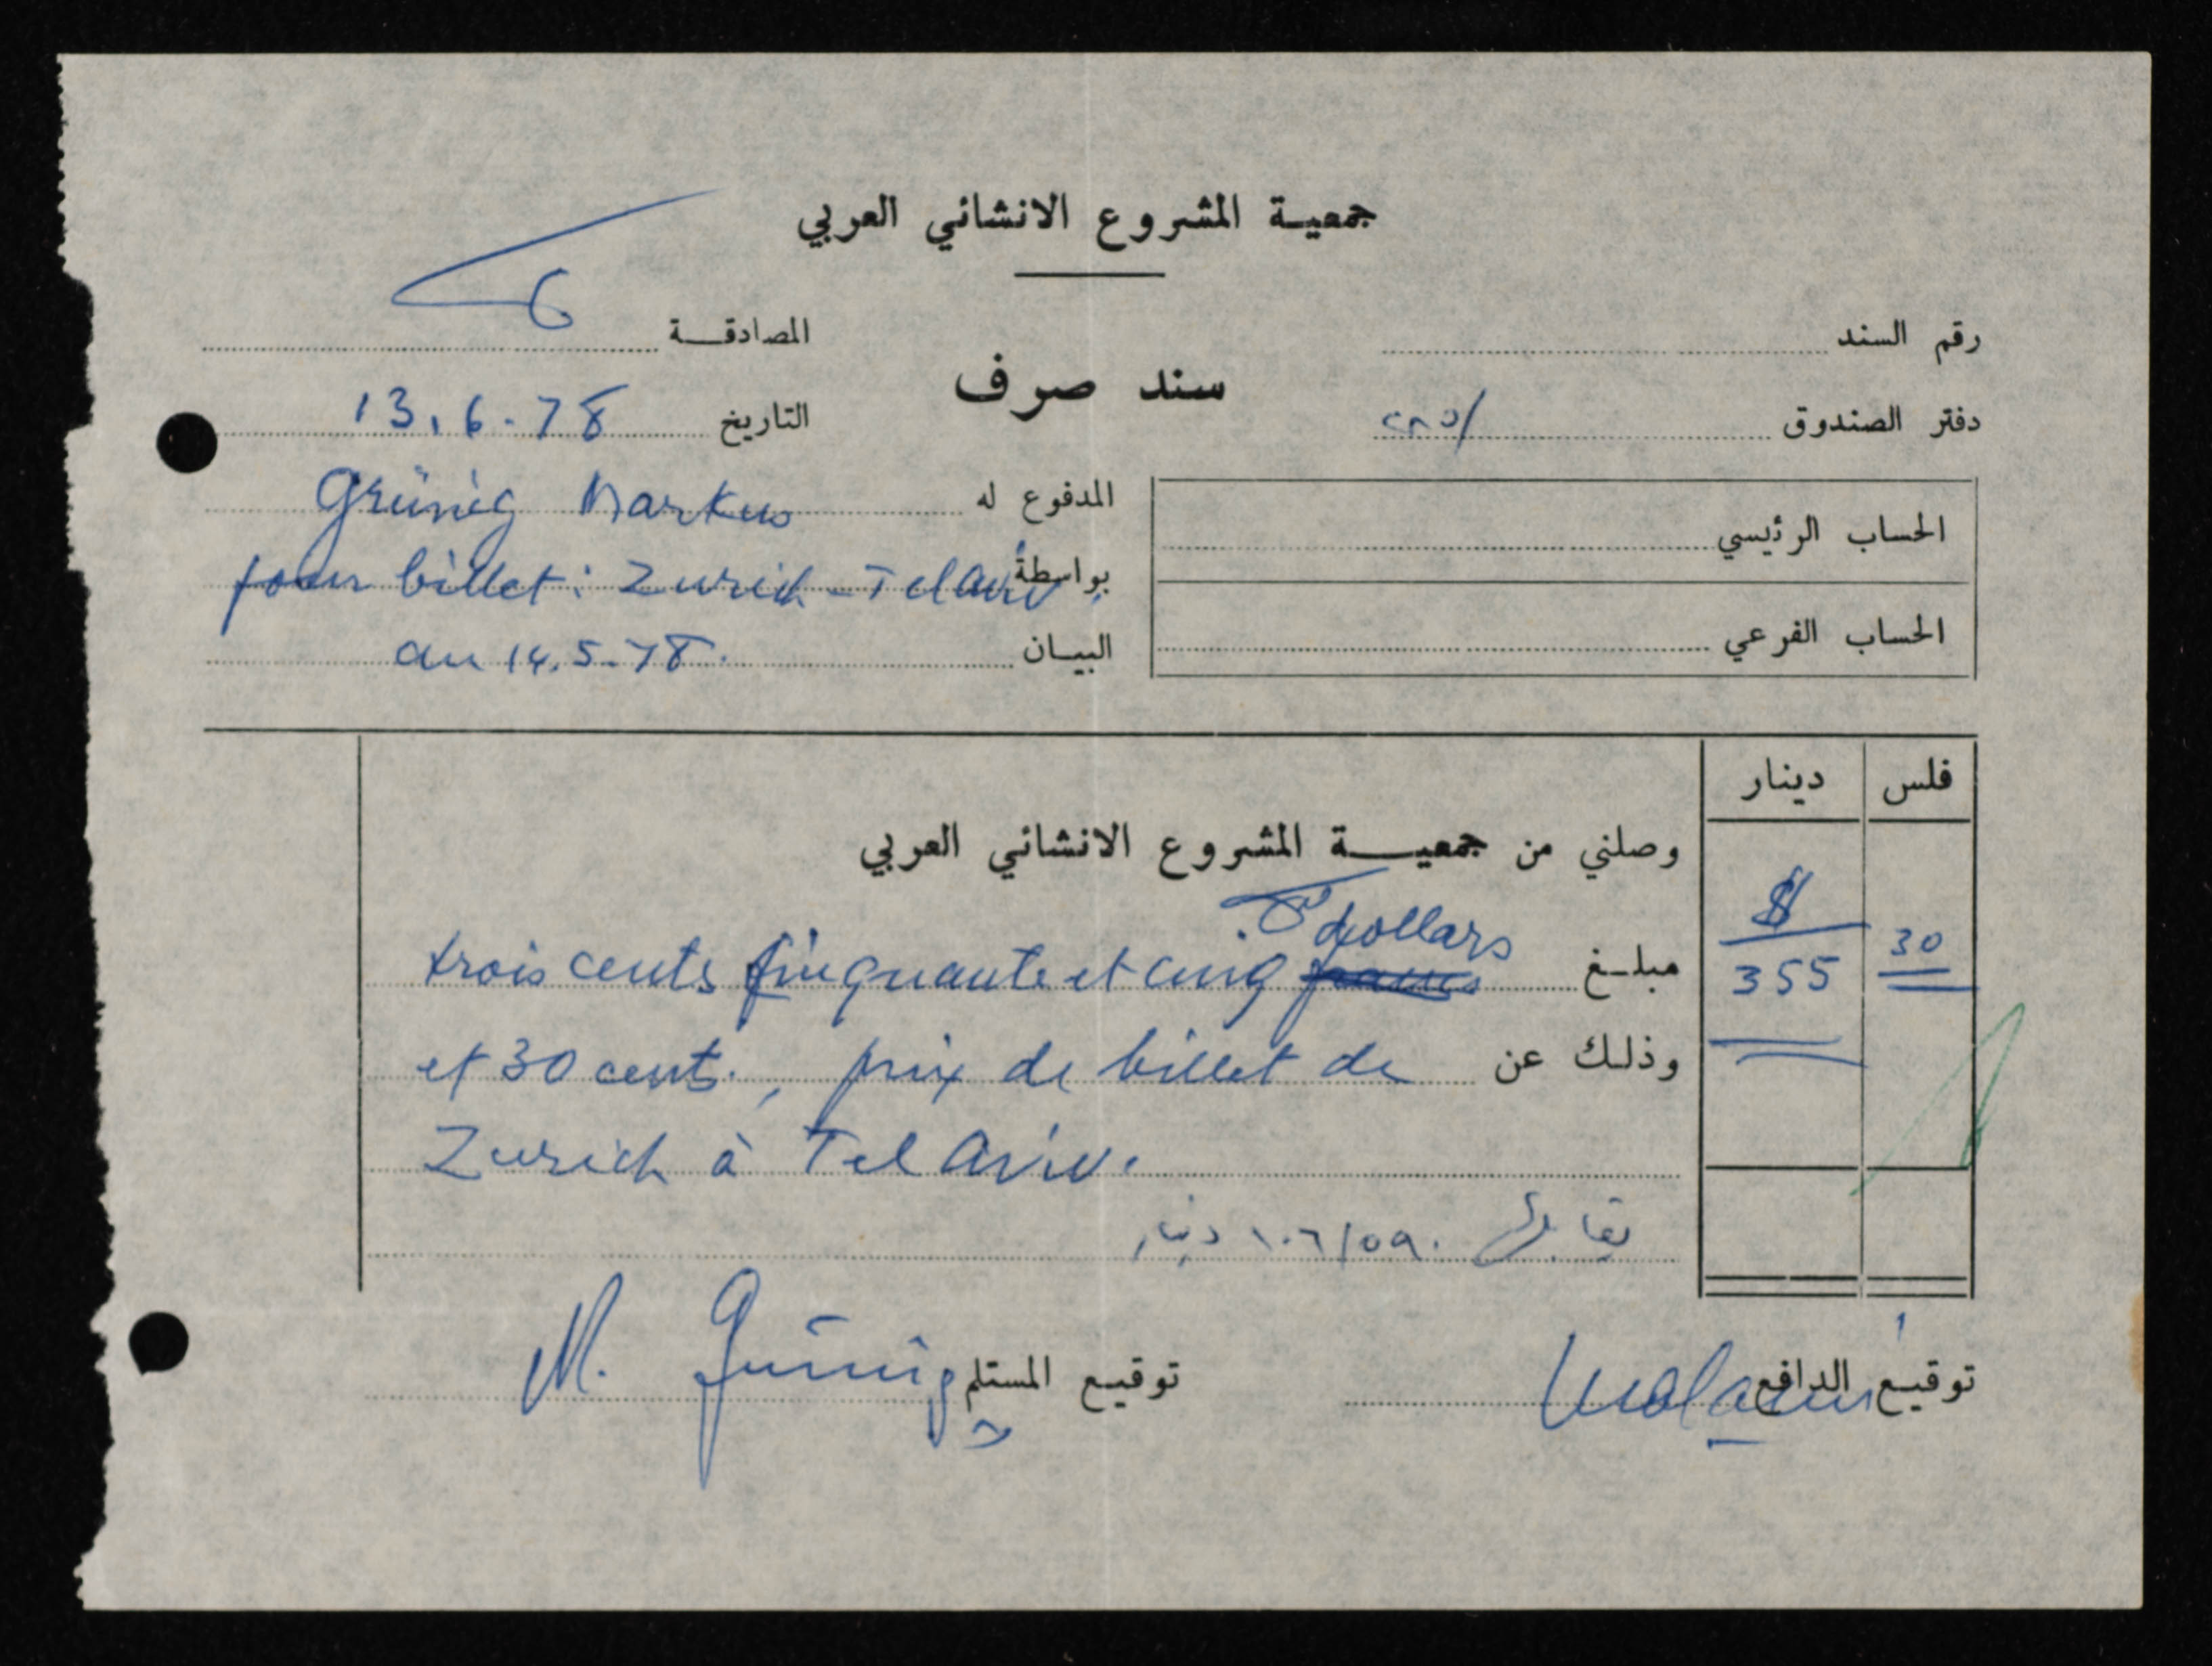 جمعية المشروع الانشائي العربي
رقم السند
المصادقة
سند صرف
دفتر الصندوق
التاريخ 13.6-78
المدفوع له Grünig Markus
بواسطة pour billet: Zurich - Tel Aviv
البيان au 14.5-78.
الحساب الرئيسي
الحساب الفرعي
فلس دينار
وصلني من جمعية المشروع الانشائي العربي
$
dollars
مبلغ trois cents cinquante et cinq francs
355 30
وذلك عن et 30 cent., prix de billet de
Zurich à Tel Aviv.
١٠٦/٥٩٠ دينار
توقيع الدافع
توقيع المستلم M. Grünig